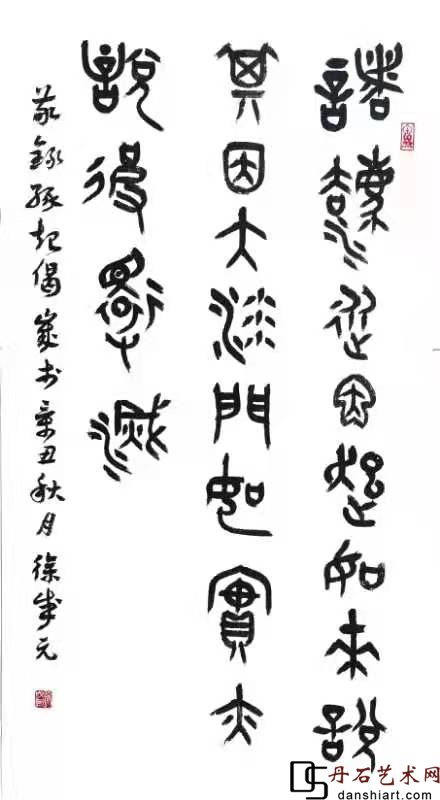 諸灋從因起如來說
其因大沙門如實亦
說彼滅
敬錄緣起偈辛丑秋月徐元
丹石艺术网
danshiart.com